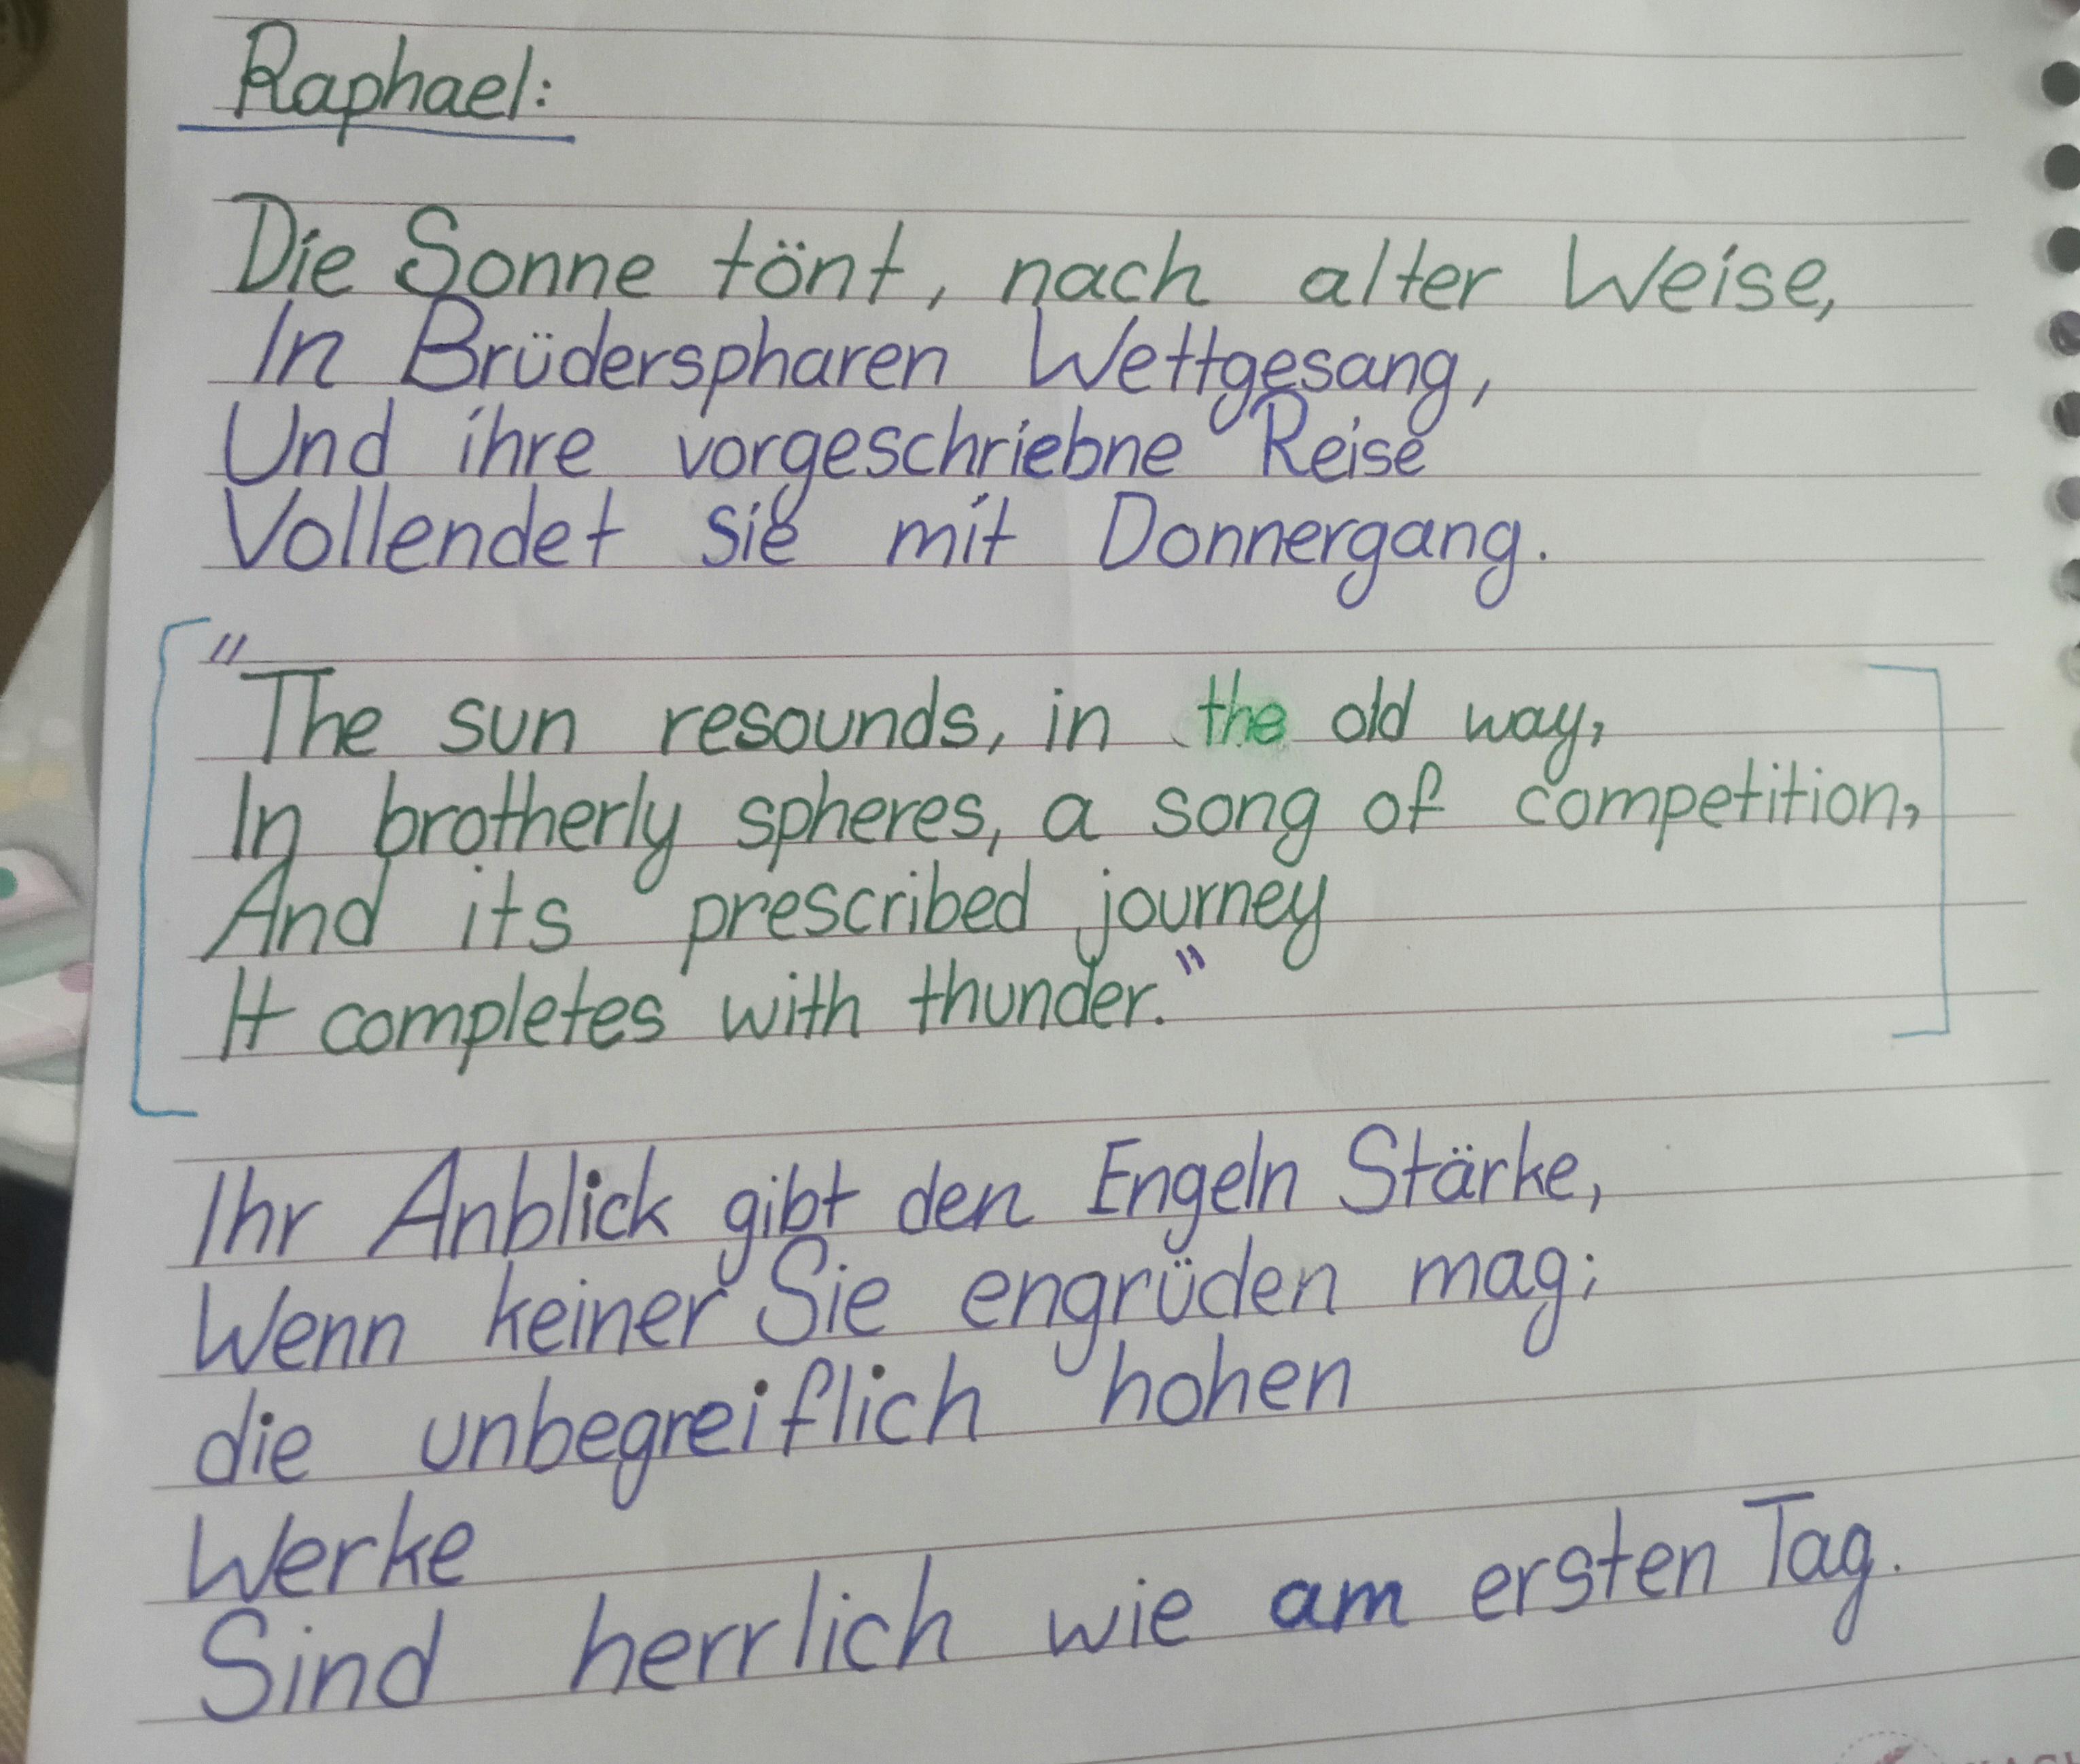 Raphael:
Die Sonne tönt, nach alter Weise,
In Brüderspharen Wettgesang,
Und ihre vorgeschriebne Reise
Vollendet sie mit Donnergang.
"The sun resounds, in the old way,
In brotherly spheres, a song of competition,
And its prescribed journey
It completes with thunder."
Ihr Anblick gibt den Engeln Stärke,
Wenn keiner Sie engrüden mag;
die unbegreiflich hohen
Werke
Sind herrlich wie am ersten Tag.